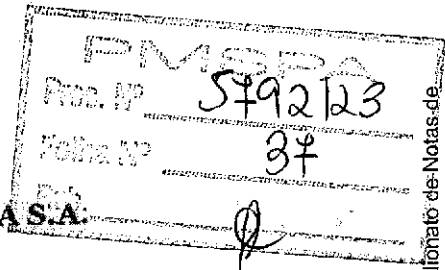 PMSPA
Proc. Nº 5792/23
Folha Nº 37
Rub.
A S.A.
lionato de Notas de